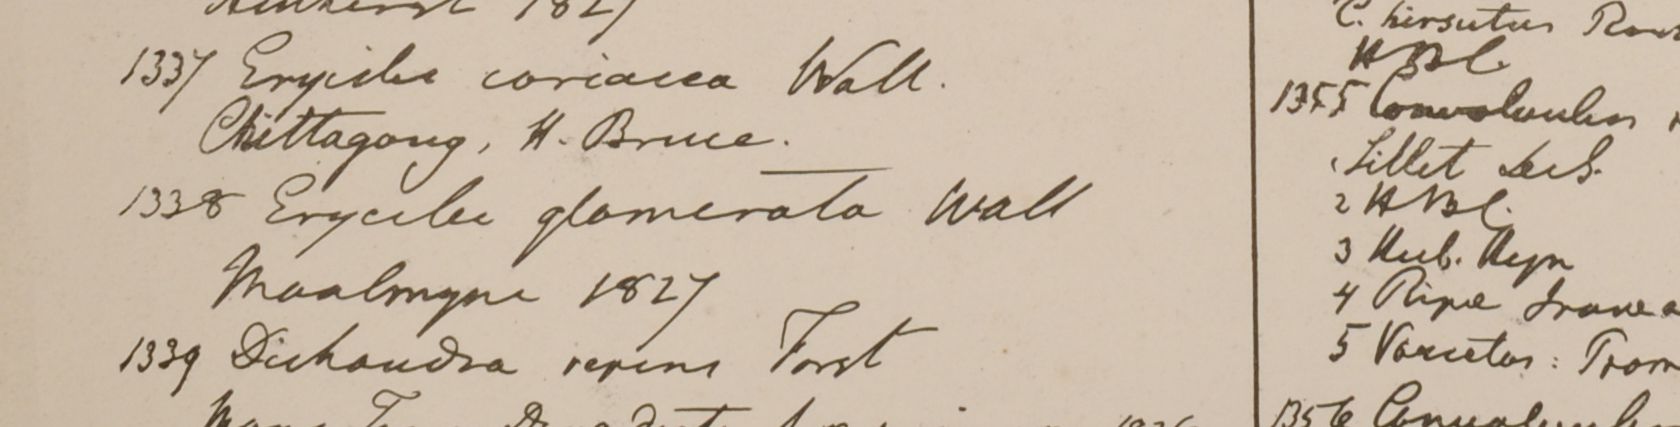 Amherst 1827
1337 Erycibe coriacea Wall.
Chittagong, H. Bruce.
1338 Erycibe glomerata Wall
Moalmyne 1827
1339 Dichondra repens Forst
1826
C. hirsutus Rox
H Bl.
1355 Convolvulus
Sillet
2 H Bl.
3 Heb. Heyn
4 Ripae Irawa
5 Varietas: Trom
1356 Convolvulus